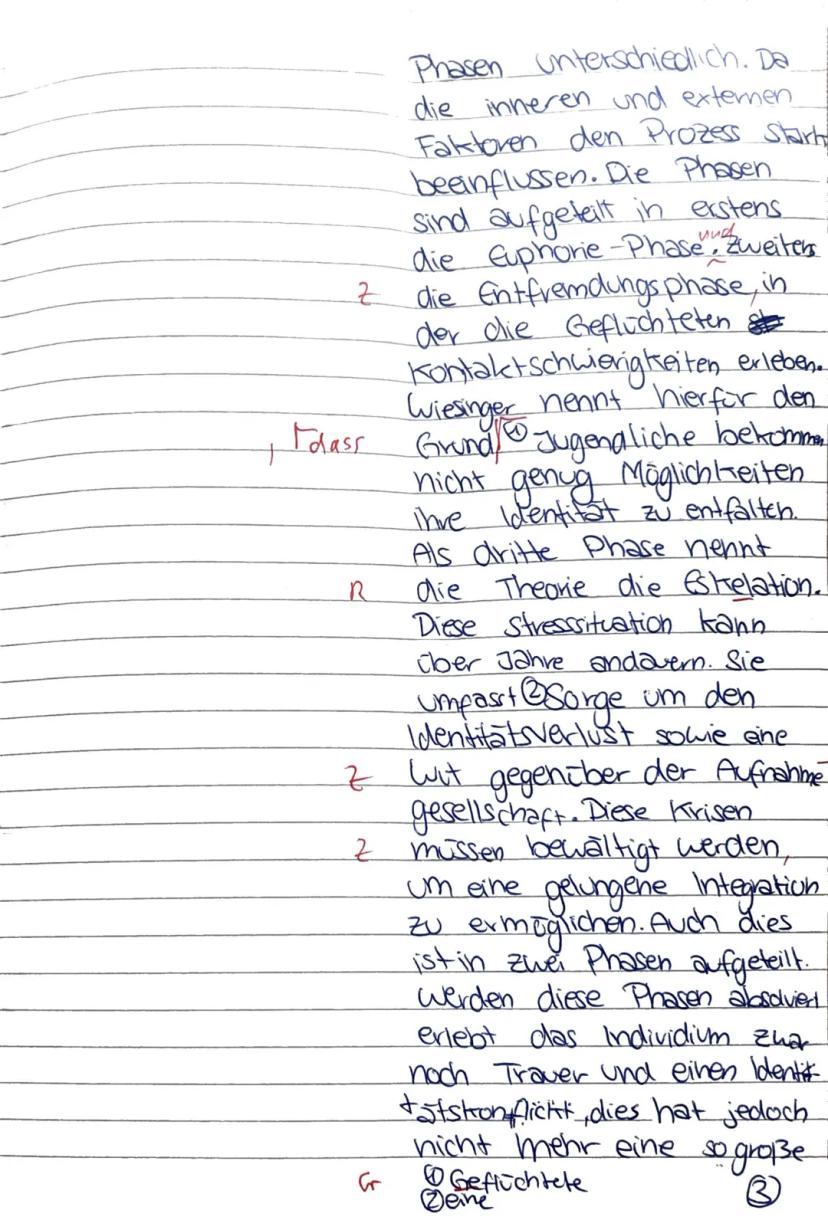 Phasen unterschiedlich. Da
die inneren und externen
Faktoren den Prozess stark
beeinflussen. Die Phasen
sind aufgeteilt in erstens
die Euphorie-Phase. und zweitens
Z die Entfremdungsphase, in
der die Geflüchteten
Kontaktschwierigkeiten erleben.
Wiesinger nennt hierfür den
, Γdass Grund ① Jugendliche bekommen
nicht genug Möglichkeiten
ihre Identität zu entfalten.
Als dritte Phase nennt
R die Theorie die Eskelation.
Diese Stresssituation kann
über Jahre andauern. Sie
umfasst ② Sorge um den
Identitätsverlust sowie eine
Z Wut gegenüber der Aufnahme-
gesellschaft. Diese Krisen
Z müssen bewältigt werden,
um eine gelungene Integration
zu ermöglichen. Auch dies
ist in zwei Phasen aufgeteilt.
Werden diese Phasen absolviert
erlebt das Individium zwar
noch Trauer und einen Identi-
tätskonflickt, dies hat jedoch
nicht mehr eine so große
Gr ① Geflüchtete
② eine
③